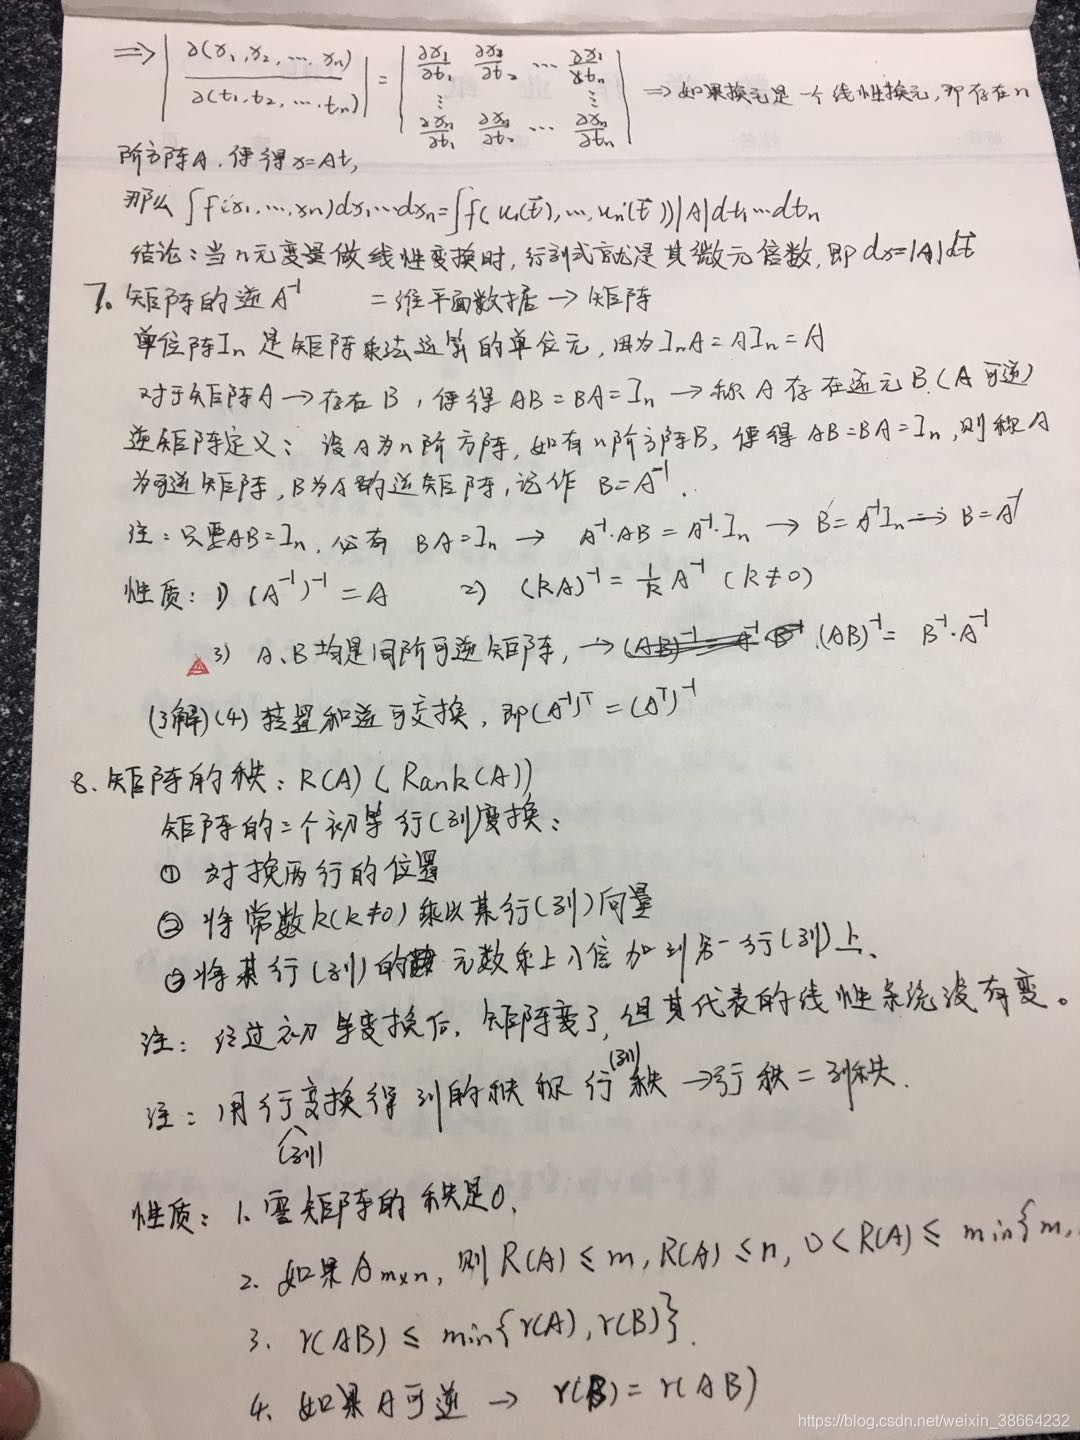 ⟹ |∂(x₁,x₂,…,xₙ)/∂(t₁,t₂,…,tₙ)| = |∂x₁/∂t₁ ∂x₂/∂t₂ … ∂x₁/∂tₙ ⋮ ⋮ ∂xₙ/∂t₁ ∂x₂/∂t₂ … ∂xₙ/∂tₙ| ⟹ 如果换元是一个线性换元,即存在n
阶方阵A,使得x=At,
那么 ∫f(x₁,…,xₙ)dx₁…dxₙ=∫f(u₁(t⃗),…,uₙ(t⃗))|A|dt₁…dtₙ
结论:当n元变量做线性变换时,行列式就是其微元倍数,即 dx=|A|dt⃗
7. 矩阵的逆A⁻¹ 二维平面数据→矩阵
单位阵Iₙ 是矩阵乘法运算的单位元,因为IₙA=AIₙ=A
对于矩阵A→存在B,使得AB=BA=Iₙ→称A存在逆元B.(A可逆)
逆矩阵定义:设A为n阶方阵,如有n阶方阵B,使得AB=BA=Iₙ,则称A
为可逆矩阵,B为A的逆矩阵,记作 B=A⁻¹.
注:只要AB=Iₙ,必有 BA=Iₙ → A⁻¹·AB=A⁻¹·Iₙ → B=A⁻¹Iₙ ⟹ B=A⁻¹
性质:1) (A⁻¹)⁻¹=A 2) (kA)⁻¹=1/k A⁻¹ (k≠0)
3) A、B均是同阶可逆矩阵,→ (AB)⁻¹= B⁻¹·A⁻¹
(了解)(4) 转置和逆可交换,即(A⁻¹)ᵀ=(Aᵀ)⁻¹
8. 矩阵的秩:R(A) (Rank(A))
矩阵的三个初等行(列)变换:
① 对换两行的位置
② 将常数k(k≠0)乘以某行(列)向量
③ 将某行(列)的元数乘上λ倍加到另一行(列)上、
注:经过初等变换后,矩阵变了,但其代表的线性系统没有变。
注:用行(列)变换得到的秩称行(列)秩→行秩=列秩.
性质:1. 零矩阵的秩是0,
2. 如果Aₘₓₙ,则R(A)≤m,R(A)≤n,0<R(A)≤ min{m,
3. r(AB)≤ min{r(A),r(B)}.
4. 如果A可逆→ r(B)=r(AB)
https://blog.csdn.net/weixin_38664232